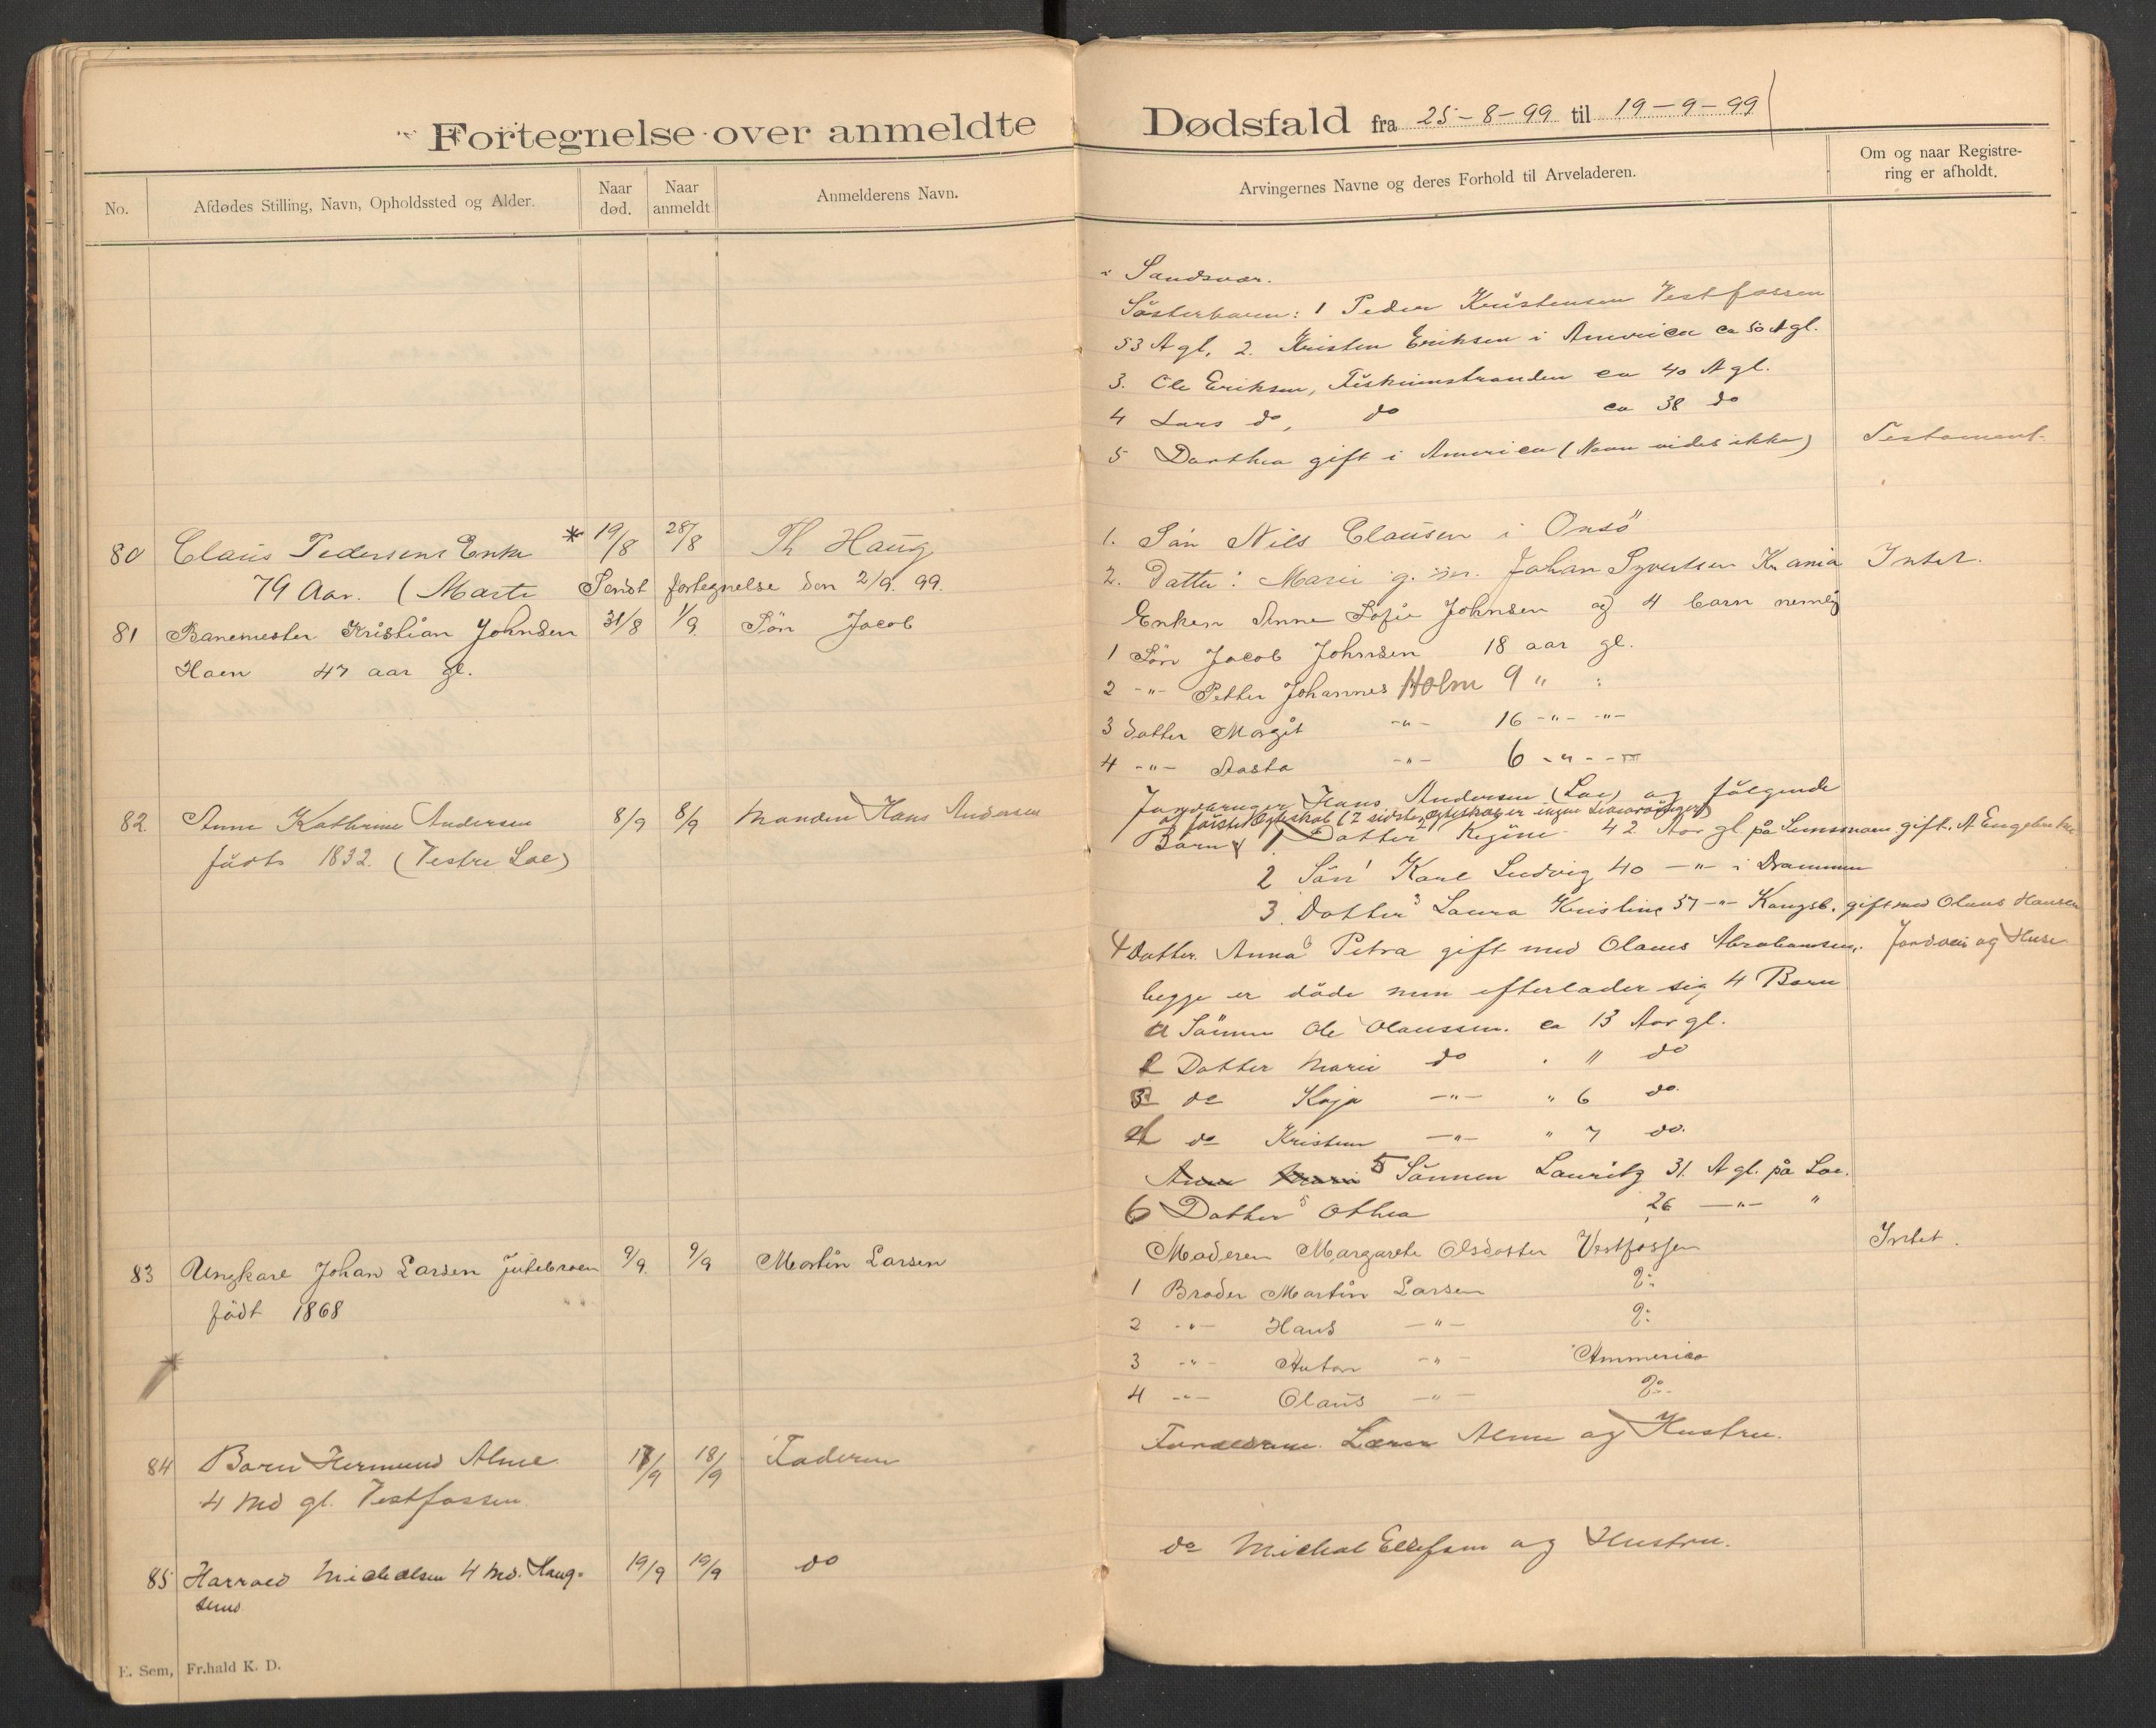 Fortegnelse over anmeldte
No.
Afdødes Stilling, Navn, Opholdssted og Alder.
Naar død.
Naar anmeldt
Anmelderens Navn.
80 Claus Pedersens Enke * 19/8 28/8 Th Haug
79 Aar. (Marte Sendt fortegnelse den 2/9. 99.
81 Banemester Kristian Johnsen 31/8 1/9 Søn Jacob
Haen 47 aar gl.
82. Anne Kathrine Andersen 8/9 8/9 Manden Hans Andersen
født 1832. (Vestre Loe)
83 Ungkarl Johan Larsen 9/9 9/9 Martin Larsen
født 1868
84 Barn Hermund Alme 17/9 18/9 Faderen
4 Md gl. Vestfossen
85 Harrald Michelsen 4 Md. Haug- 19/9 19/9 do
E. Sem, Fr.hald K. D.
Dødsfald fra 25-8-99 til 19-9-99
Arvingernes Navne og deres Forhold til Arveladeren.
Om og naar Registre-
ring er afholdt.
i Sandsvær.
Søsterbarn: 1 Peder Kristensen Vestfossen
53 A gl, 2. Kristen Eriksen i America ca 50 A gl.
3. Ole Eriksen, Fiskumstranden ca 40 A gl.
4 Lars do, do ca 38 do
5 Dorthea gift i America (Navn vides ikke) Testament-
1. Søn Nils Clausen i Onsø
2. Datter: Marie g. m. Johan Syvertsen Kr.ania Intet.
Enken Anne Sofie Johnsen og 4 barn nemlig
1 Søn Jacob Johnsen 18 aar gl.
2 -"- Petter Johannes Holm 9 "
3 datter Margit -"- 16 -"- -"-
4 -"- Aasta -"- 6 -"-
Jordbruger Hans Andersen (Loe) og følgende
af første Ægteskab (I sidste Ægteskab er ingen Livsarvinger)
Barn 1 Datter Regine 42 Aar gl på Semsmoen gift. A Engebretsen
2 Søn Karl Ludvig 40 -"- i Drammen
3 Datter Laura Kristine 37 -"- Kongsb. gift med Olaus Hansen
4 Datter. Anna Petra gift med Olaus Abrahamsen. Jordvei og Huse
begge er døde men efterlader sig 4 Barn
Sønnen Ole Olaussen. ca 13 Aar gl.
Datter Marie do " do
3 do Kaja -"- " 6 do.
4 do Kristine -"- " 7 do.
5 Sønnen Lauritz 31. A gl. på Loe.
6 Datter Othea 26 -"- "
Moderen Margarethe Olsdatter Vestfossen Intet.
1 Broder Martin Larsen do
2 -"- Hans -"- do
3 -"- Anton -"- Ammerica
4 -"- Olaus -"- do
Forældrene. Lærer Alme og Hustru.
do Michal Ellefsen og Hustru.